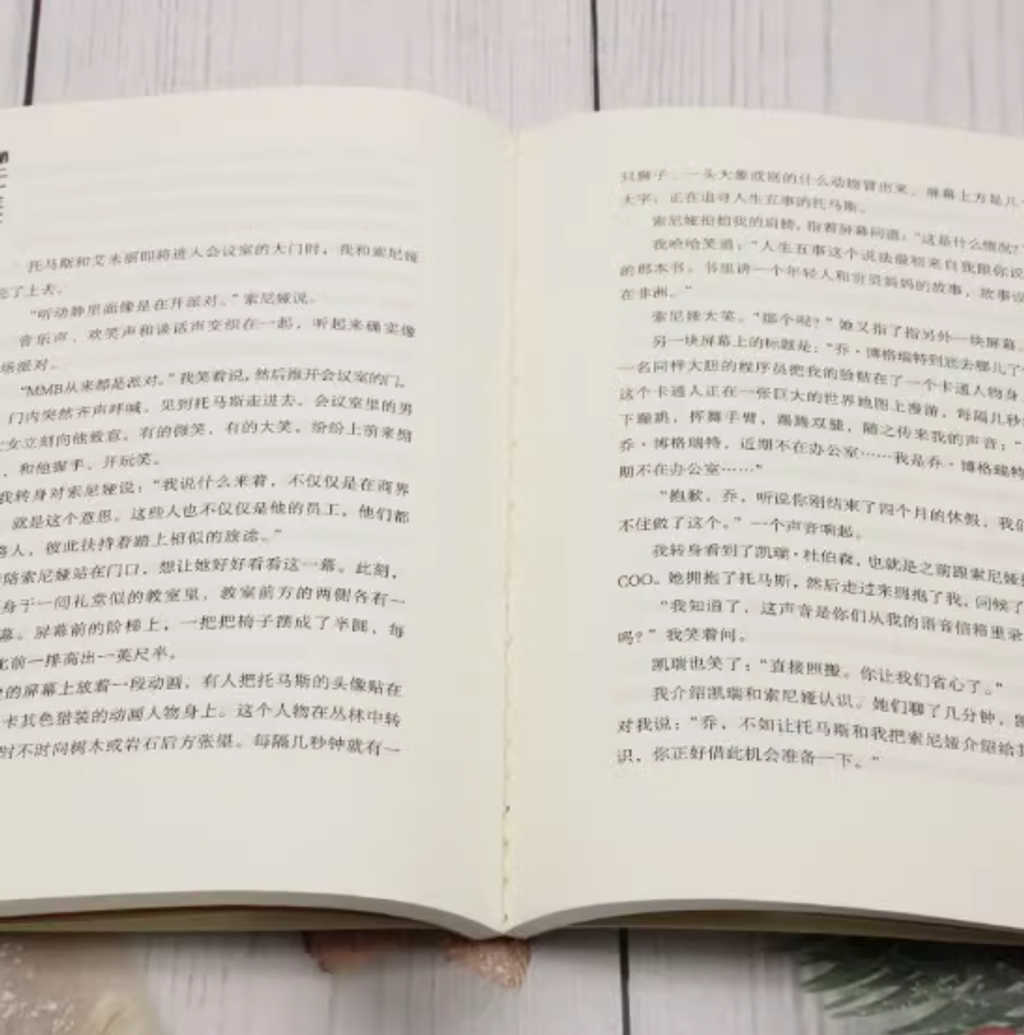 第二十
托马斯和艾米丽即将进入会议室的大门时，我和索尼娅
了上去。
“听动静里面像是在开派对。”索尼娅说。
音乐声、欢笑声和谈话声交织在一起，听起来确实像
场派对。
“MMB从来都是派对。”我笑着说，然后推开会议室的门。
门内突然齐声呼喊。见到托马斯走进去，会议室里的男
女立刻向他致意。有的微笑，有的大笑。纷纷上前来
，和他握手、开玩笑。
我转身对索尼娅说：“我说什么来着，不仅仅是在商界
就是这个意思。这些人也不仅仅是他的员工，他们都
人，彼此扶持着踏上相似的旅途。”
陪索尼娅站在门口，想让她好好看看这一幕。此刻，
身于一间礼堂似的教室里，教室前方的两侧各有一
幕。屏幕前的阶梯上，一把把椅子摆成了半圆，每
比前一排高出一英尺半。
的屏幕上放着一段动画，有人把托马斯的头像贴在
卡其色猎装的动画人物身上。这个人物在丛林中转
时不时向树木或岩石后方张望。每隔几秒钟就有一
只狮子、一头大象或别的什么动物冒出来。屏幕上方是几个
大字：正在追寻人生五事的托马斯。
索尼娅拍拍我的肩膀，指着屏幕问道：“这是什么情况？”
我哈哈笑道：“人生五事这个说法最初来自我跟你说
的那本书。书里讲一个年轻人和贡贝妈妈的故事，故事
在非洲。”
索尼娅大笑。“那个呢？”她又指了指另外一块屏幕。
另一块屏幕上的标题是：“乔·博格瑞特到底去哪儿了
一名同样大胆的程序员把我的脸贴在了一个卡通人物身
这个卡通人正在一张巨大的世界地图上漫游，每隔几秒
下蹦跳，挥舞手臂，踢踢双腿，随之传来我的声音：“
乔·博格瑞特，近期不在办公室……我是乔·博格瑞特
期不在办公室……”
“抱歉，乔，听说你刚结束了四个月的休假，我们
不住做了这个。”一个声音响起。
我转身看到了凯瑞·杜伯森，也就是之前跟索尼娅
COO。她拥抱了托马斯，然后走过来拥抱了我，问候了
“我知道了，这声音是你们从我的语音信箱里录
吗？”我笑着问。
凯瑞也笑了：“直接照搬。你让我们省心了。”
我介绍凯瑞和索尼娅认识。她们聊了几分钟，凯
对我说：“乔，不如让托马斯和我把索尼娅介绍给
识，你正好借此机会准备一下。”